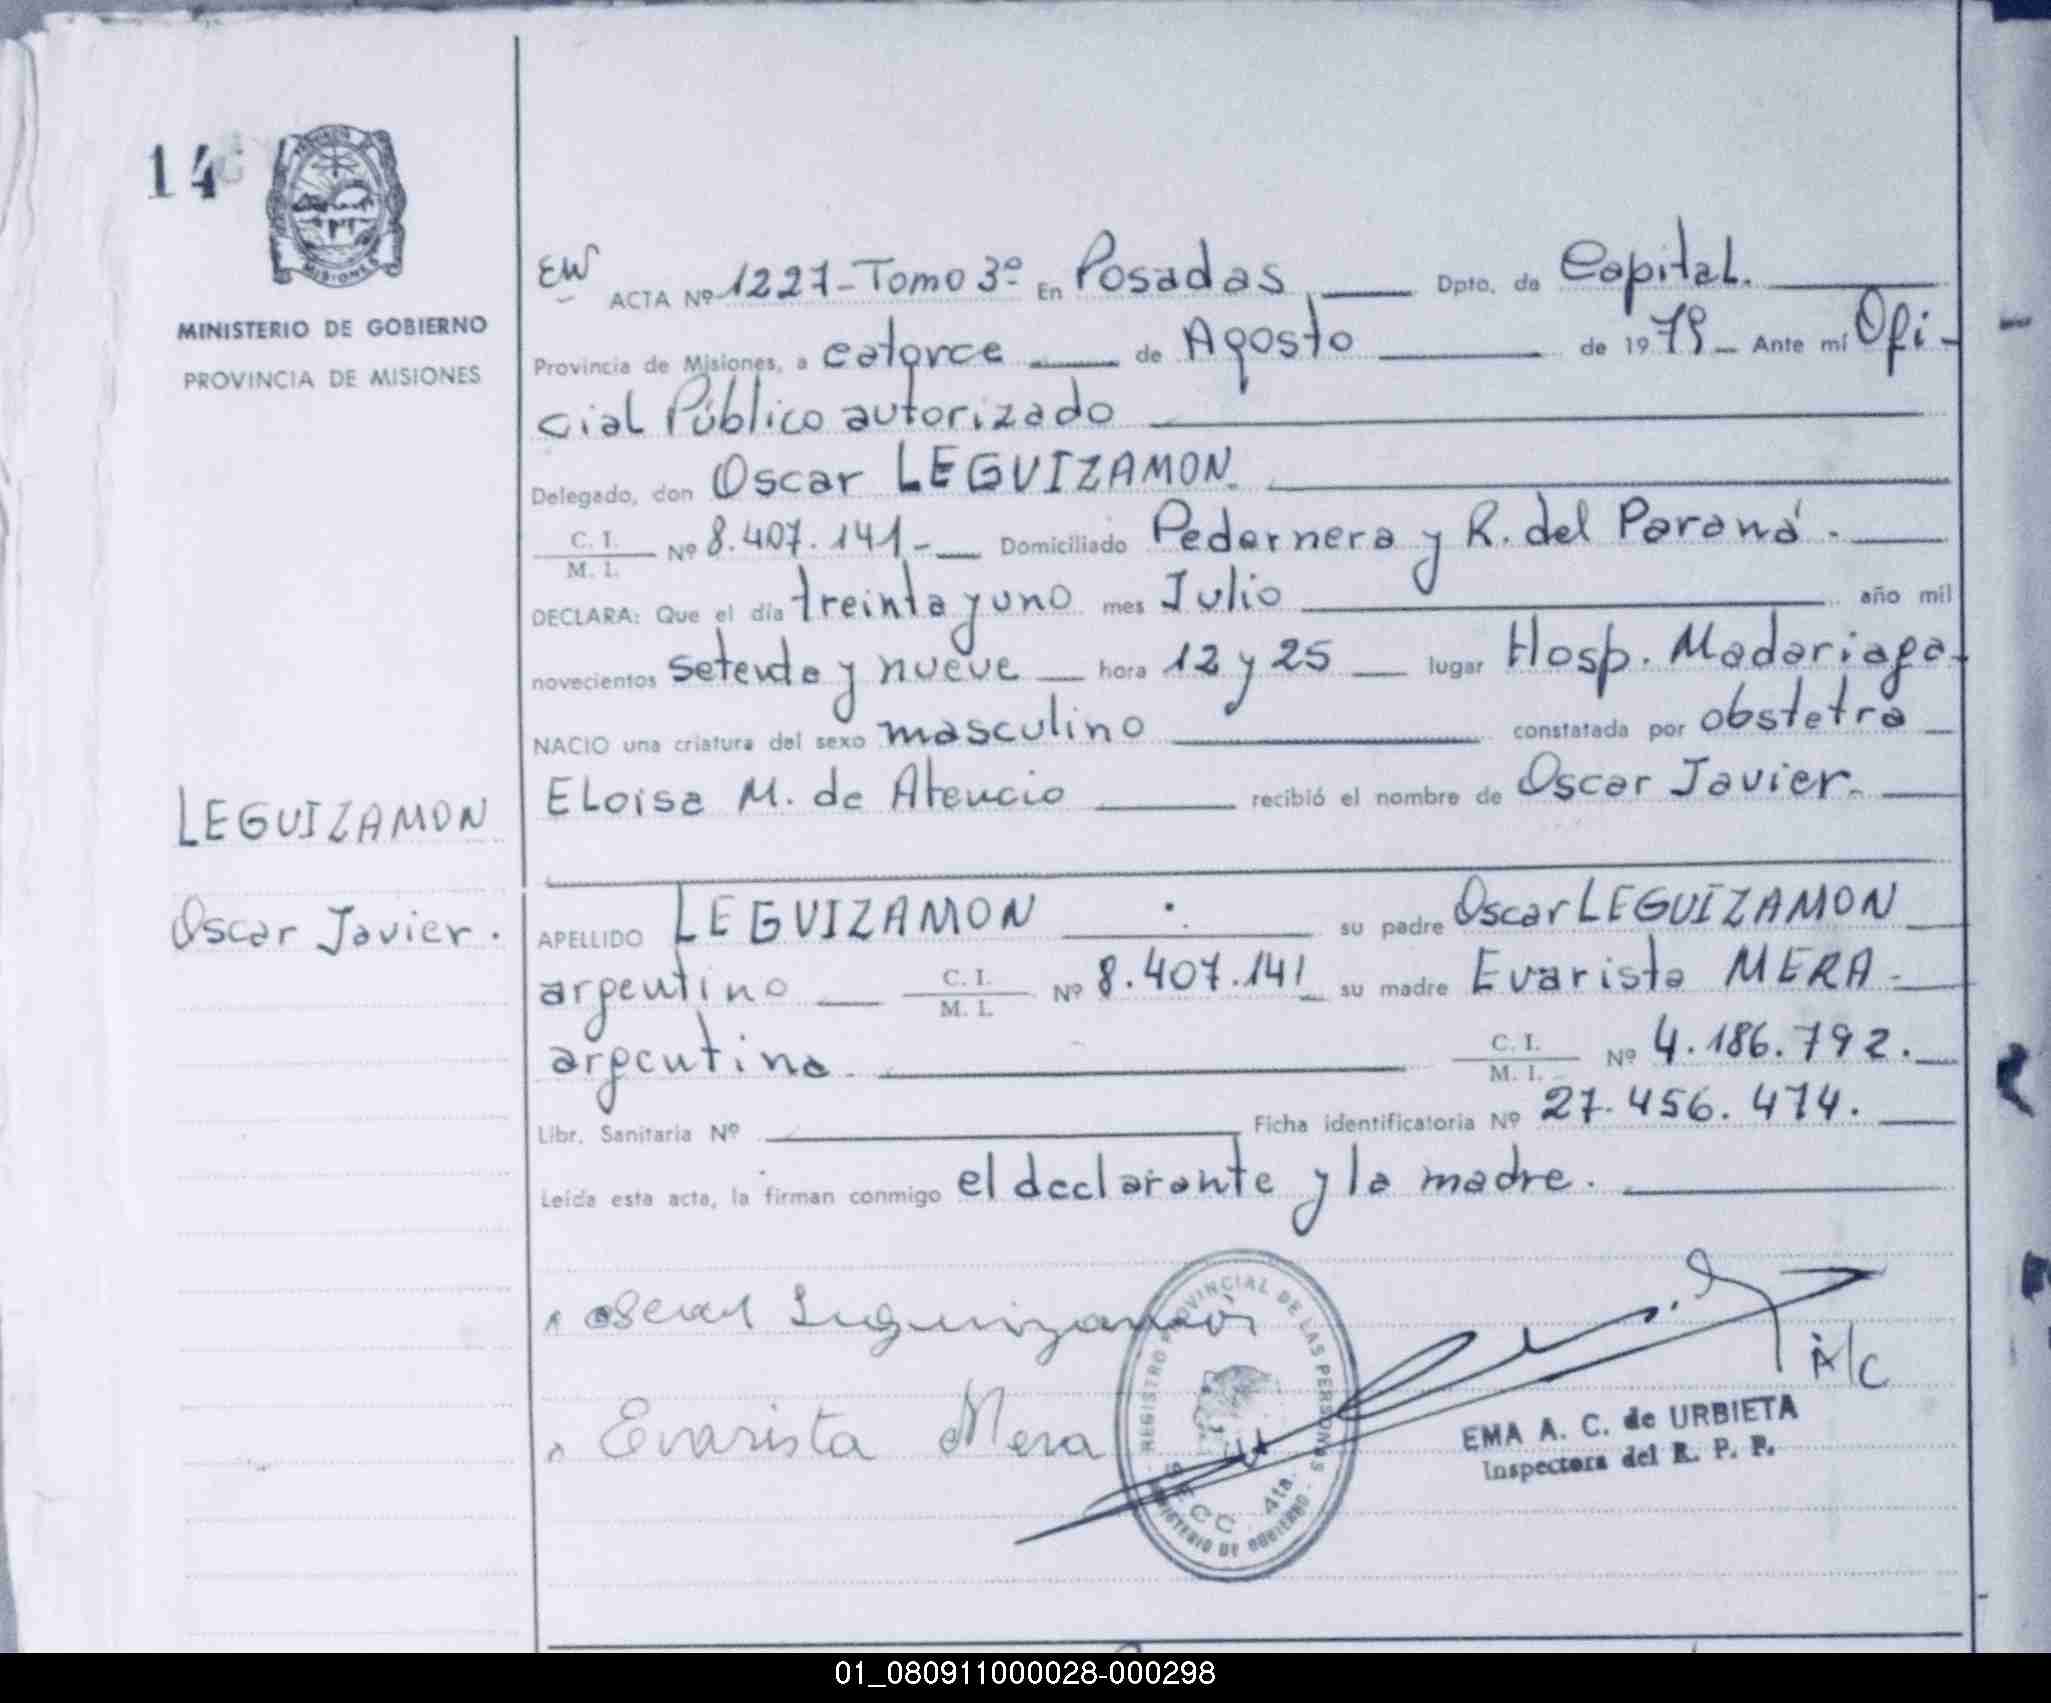 14
MISIONES
MINISTERIO DE GOBIERNO
PROVINCIA DE MISIONES
LEGUIZAMON
Oscar Javier.
EW ACTA Nº 1227-Tomo 3º En Posadas Dpto. de Capital.
Provincia de Misiones, a catorce de Agosto de 1979 Ante mí Ofi-
cial Público autorizado
Delegado, don Oscar LEGUIZAMON.
C. I. / M. I. Nº 8.407.141- Domiciliado Pedernera y R. del Paraná.
DECLARA: Que el día treinta y uno mes Julio año mil
novecientos setenta y nueve hora 12 y 25 lugar Hosp. Madariaga-
NACIO una criatura del sexo masculino constatada por obstetra
Eloisa M. de Atencio recibió el nombre de Oscar Javier.
APELLIDO LEGUIZAMON su padre Oscar LEGUIZAMON
argentino C. I. / M. I. Nº 8.407.141 su madre Evarista MERA-
argentina. C. I. / M. I. Nº 4.186.792.
Libr. Sanitaria Nº Ficha identificatoria Nº 27.456.474.
Leída esta acta, la firman conmigo el declarante y la madre.
Oscar Leguizamón
Evarista Mera
REGISTRO PROVINCIAL DE LAS PERSONAS
SECC. 4ta.
MINISTERIO DE GOBIERNO
A/C
EMA A. C. de URBIETA
Inspectora del R. P. P.
01_080911000028-000298